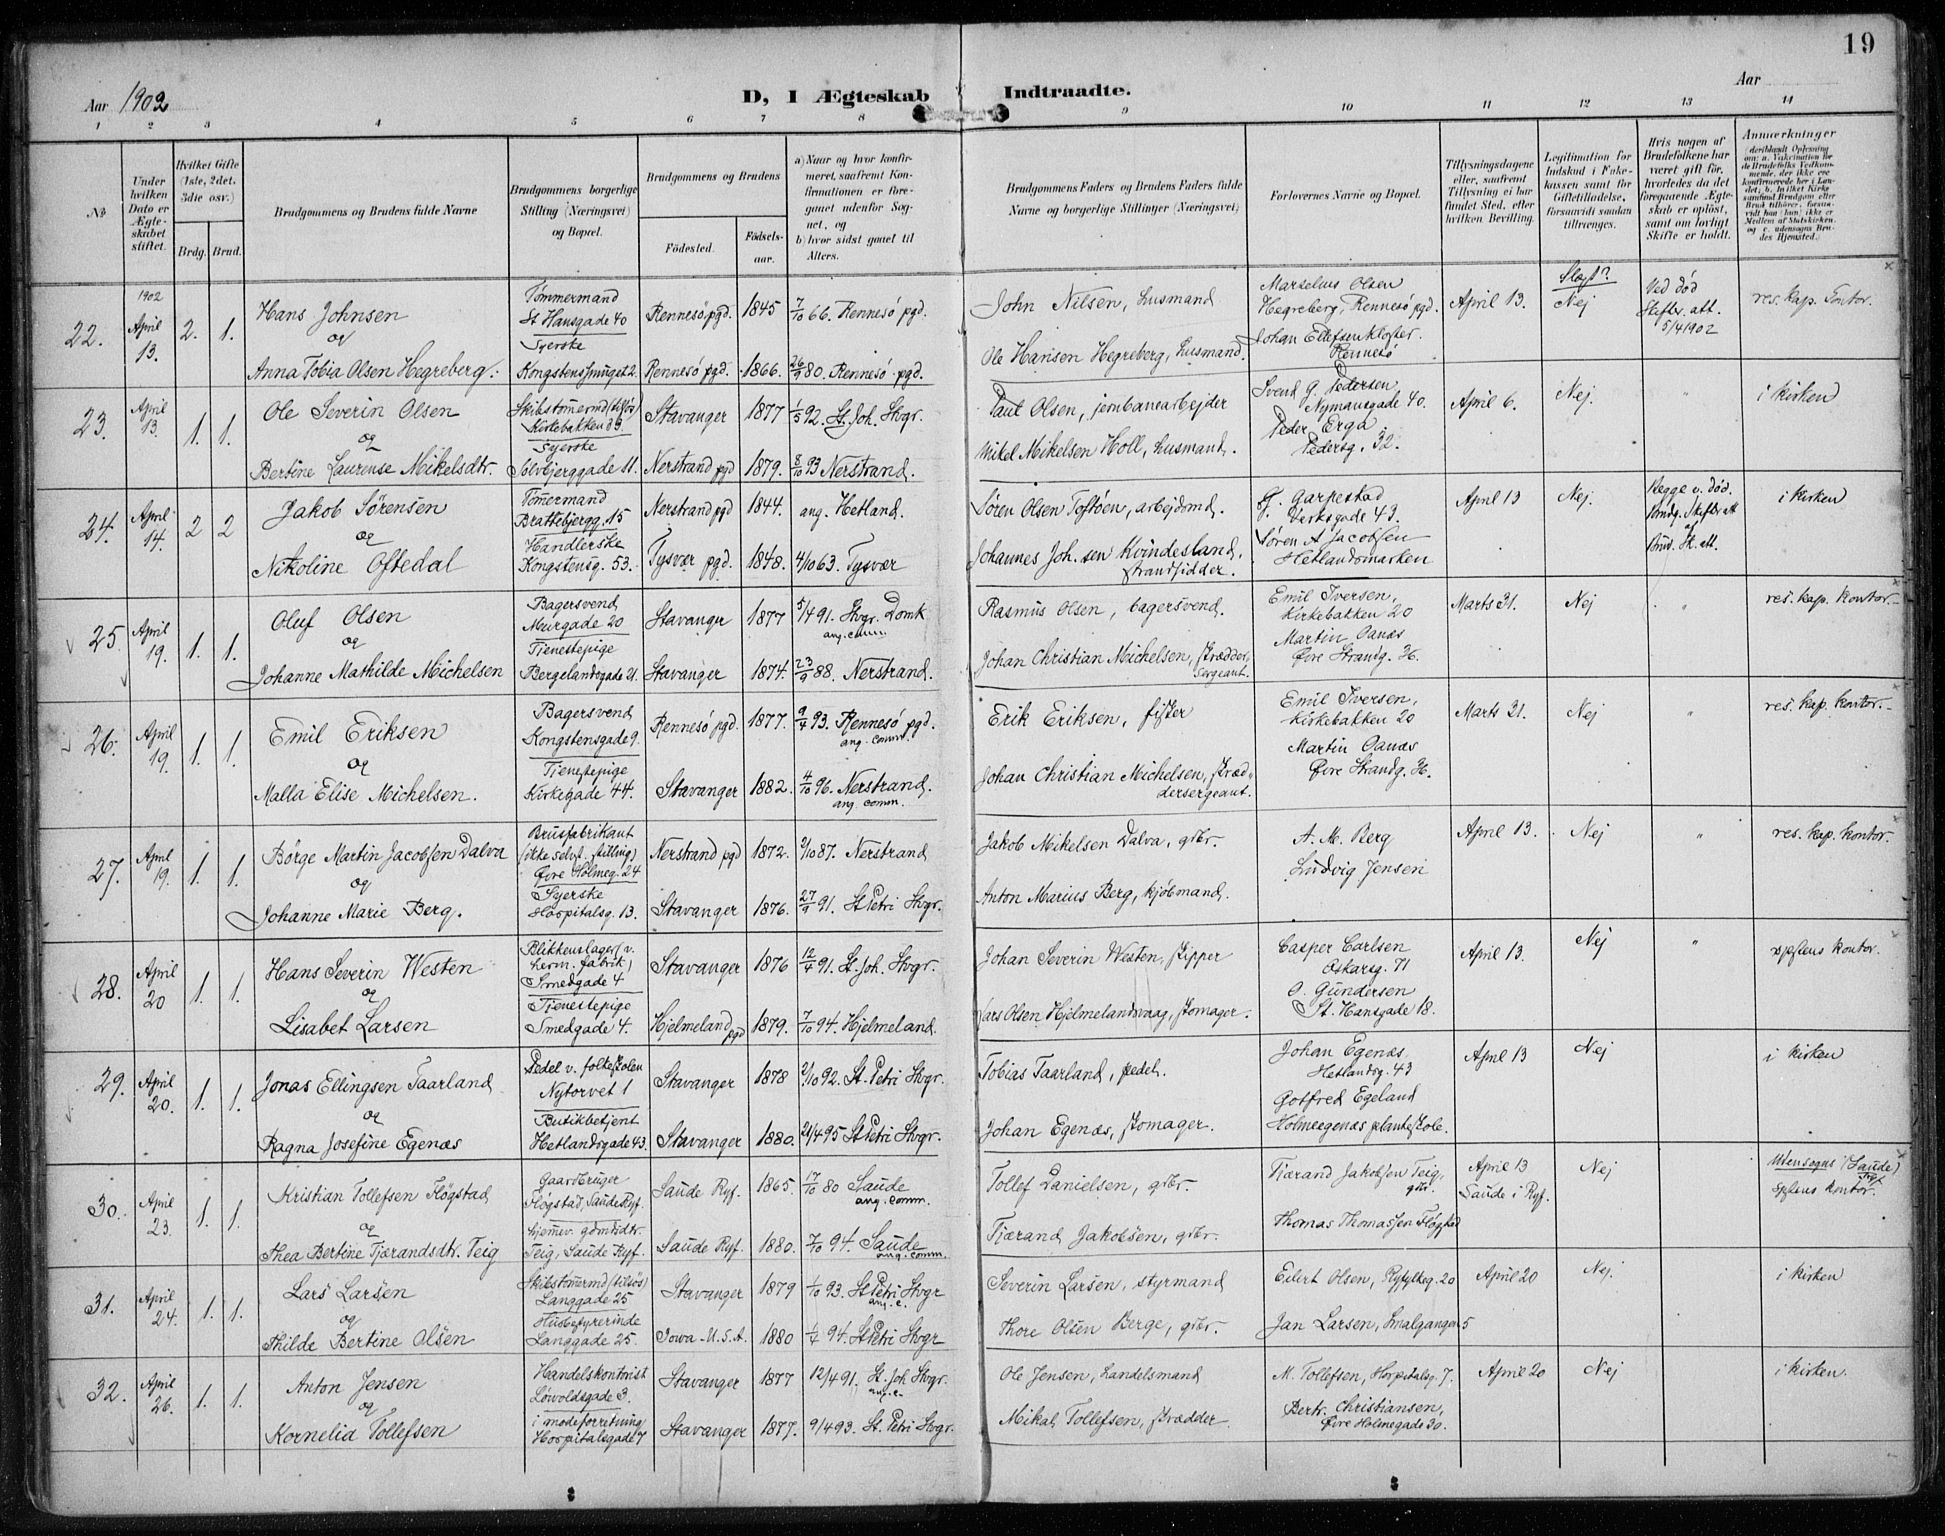 19
Aar 1902
D, I Ægteskab Indtraadte.
Aar
1 2 3 4 5 6 7 8 9 10 11 12 13 14
No
Under hvilken Dato er Ægteskabet stiftet.
Hvilket Gifte (1ste, 2det, 3die osv.)
Brdg. Brud.
Brudgommens og Brudens fulde Navne
Brudgommens borgerlige Stilling (Næringsvei) og Bopæl.
Brudgommens og Brudens
Fødested.
Fødselsaar.
a) Naar og hvor konfirmeret, saafremt Konfirmationen er foregaaet udenfor Sognet, og
b) hvor sidst gaaet til Alters.
Brudgommens Faders og Brudens Faders fulde Navne og borgerlige Stillinger (Næringsvei)
Forlovernes Navne og Bopæl.
Tillysningsdagene eller, saafremt Tillysning ei har fundet Sted, efter hvilken Bevilling.
Legitimation for Indskud i Enkekassen samt for Giftetilladelse, forsaavidt saadan tiltrænges.
Hvis nogen af Brudefolkene har været gift før, hvorledes da det foregaaende Ægteskab er opløst, samt om lovligt Skifte er holdt.
Anmærkninger
22. 1902 April 13. 2. 1.
Hans Johnsen
og
Anna Tobia Olsen Hegreberg.
Tømmermand
St Hansgade 40
Syerske
Kongstensmuget 2.
Rennesø pgd. 1845 7/10 66. Rennesø pgd.
Rennesø pgd. 1866. 26/9 80. Rennesø pgd.
John Nilsen, husmand
Ole Hansen Hegreberg, husmand.
Marselius Olsen
Hegreberg, Rennesø pgd.
Johan Ellefsen Kloster
Rennesø
April 13.
Slegt?
Nej
Ved død
Skiftr. att.
5/4 1902
res. kap. Contor.
23. April 13. 1. 1.
Ole Severin Olsen
og
Bertine Laurense Mikelsdtr.
Skibstømrmd (tilsøs)
Kirkebakken 39
Syerske
Sølvbjerggade 11.
Stavanger 1877 1/5 92. St. Joh. Stvgr.
Nerstrand pgd 1879. 8/10 93 Nerstrand.
Paul Olsen, jernbanearbejder
Mikel Mikelsen Holl, husmand.
Svend G. Pedersen
Nymansgade 40.
Peder Erga
Pedersg. 32.
April 6. Nej. " i kirken
24. April 14. 2 2
Jakob Sørensen
og
Nikoline Oftedal
Tømmermand
Brattebjergg. 15
Handlerske
Kongstensg. 53.
Nerstrand pgd 1844. ang. Hetland.
Tysvær pgd. 1848. 4/10 63. Tysvær
Søren Olsen Toftøen, arbejdsmd.
Johannes Joh.sen Kvindesland,
strandsidder.
G. Garpestad
Verksgade 43.
Søren A Jacobsen
Hetlandsmarken
April 13 Nej.
Begge v. død.
Brudg. Skiftr att
Brud. Sk. att.
i kirken
25. April 19. 1. 1.
Oluf Olsen
og
Johanne Mathilde Michelsen
Bagersvend
Murgade 20
Tjenestepige
Bergelandsgade 21.
Stavanger 1877 5/4 91. Stvgr. Domk
ang. comm.
Stavanger 1874. 23/9 88. Nerstrand.
Rasmus Olsen, bagersvend.
Johan Christian Michelsen, skrædder
sergeant.
Emil Iversen,
Kirkebakken 20
Martin Oanæs
Øvre Strandg. 36.
Marts 31. Nej " res. kap. kontor.
26. April 19. 1. 1.
Emil Eriksen
og
Malla Elise Michelsen.
Bagersvend
Kongstensgade 9.
Tjenestepige
Kirkegade 44.
Rennesø pgd. 1877. 9/4 93. Rennesø pgd.
ang. comm.
Stavanger 1882. 4/10 96. Nerstrand.
ang. comm.
Erik Eriksen, fisker
Johan Christian Michelsen, skræd-
dersergeant.
Emil Iversen,
Kirkebakken 20
Martin Oanæs
Øvre Strandg. 36.
Marts 31. Nej " res. kap. kontor.
27. April 19. 1. 1.
Børge Martin Jacobsen Dalva
og
Johanne Marie Berg.
Brusfabrikant
(ikke selvst. stilling)
Øvre Holmeg. 24
Syerske
Hospitalsg. 13.
Nerstrand pgd 1872. 2/10 87. Nerstrand
Stavanger 1876. 27/9 91. St Petri Stvgr.
Jakob Mikelsen Dalva, gbr.
Anton Marius Berg, kjøbmand.
A. M. Berg
Ludvig Jensen
April 13. Nej " res. kap. kontor.
28. April 20 1. 1.
Hans Severin Westen
og
Lisabet Larsen
Blikkenslager (v.
herm. fabrik)
Smedgade 4
Tjenestepige
Smedgade 4.
Stavanger 1876 12/4 91. St. Joh. Stvgr.
Hjelmeland pgd 1879. 7/10 94. Hjelmeland.
Johan Severin Westen, skipper
Lars Olsen Hjelmelandsvaag, skomager.
Casper Carlsen
Oskarsg. 71
O. Gundersen
St. Hansgade 18.
April 13. Nej " spptens kontor.
29. April 20. 1. 1.
Jonas Ellingsen Taarland
og
Ragna Josefine Egenæs
Pedel v. folkeskolen
Nytorvet 1
Butikbetjent
Hetlandsgade 43.
Stavanger 1878 2/10 92. St. Petri Stvgr.
Stavanger 1880. 21/4 95 St Petri Stvgr.
Tobias Taarland, pedel.
Johan Egenæs, skomager.
Johan Egenæs,
Hetlandsg. 43
Gotfred Egeland
Holmeegenæs planteskole.
April 13 Nej i kirken
30. April 23. 1. 1.
Kristian Tollefsen Fløgstad
og
Thea Bertine Tjærandsdtr. Teig
Gaardbruger
Fløgstad, Saude Ryf.
hjemmev. gdmdsdtr.
Teig, Saude Ryf.
Saude Ryf. 1865. 17/10 80 Saude
ang. comm.
Saude Ryf. 1880. 7/10 94. Saude
ang. comm.
Tollef Danielsen, gbr.
Tjærand Jakobsen, gbr.
Tjærand Jakobsen Teig,
gbr.
Thomas Thomassen Fløgstad
April 13
Saude i Ryf.
Nej
Utensogns (Saude)
spptens kontor.
31. April 24. 1. 1.
Lars Larsen
og
Thilde Bertine Olsen
Skibstømrmd (tilsøs)
Langgade 25
Husbestyrerinde
Langgade 25.
Stavanger 1879 1/10 93. St Petri Stvgr
ang. c.
Iowa U.S.A. 1880 1/4 94. St Petri Stvgr
Severin Larsen, styrmand
Thore Olsen Berge, gbr.
Eilert Olsen, Ryfylkeg. 20
Jan Larsen, Smalgangen 5
April 20 Nej. i kirken
32. April 26. 1. 1.
Anton Jensen
og
Kornelia Tollefsen
Handelskontorist
Løvoldsgade 3.
i modeforretning
Hospitalsgade 7
Stavanger 1877 12/4 91. St. Joh Stvgr.
ang. c.
Stavanger 1877. 9/4 93. St. Petri Stvgr.
Ole Jensen, handelsmand
Mikal Tollefsen, skrædder
M. Tollefsen, Hospitalsg. 7.
Bertr. Christiansen,
Øvre Holmegade 30.
April 20 Nej i kirken.